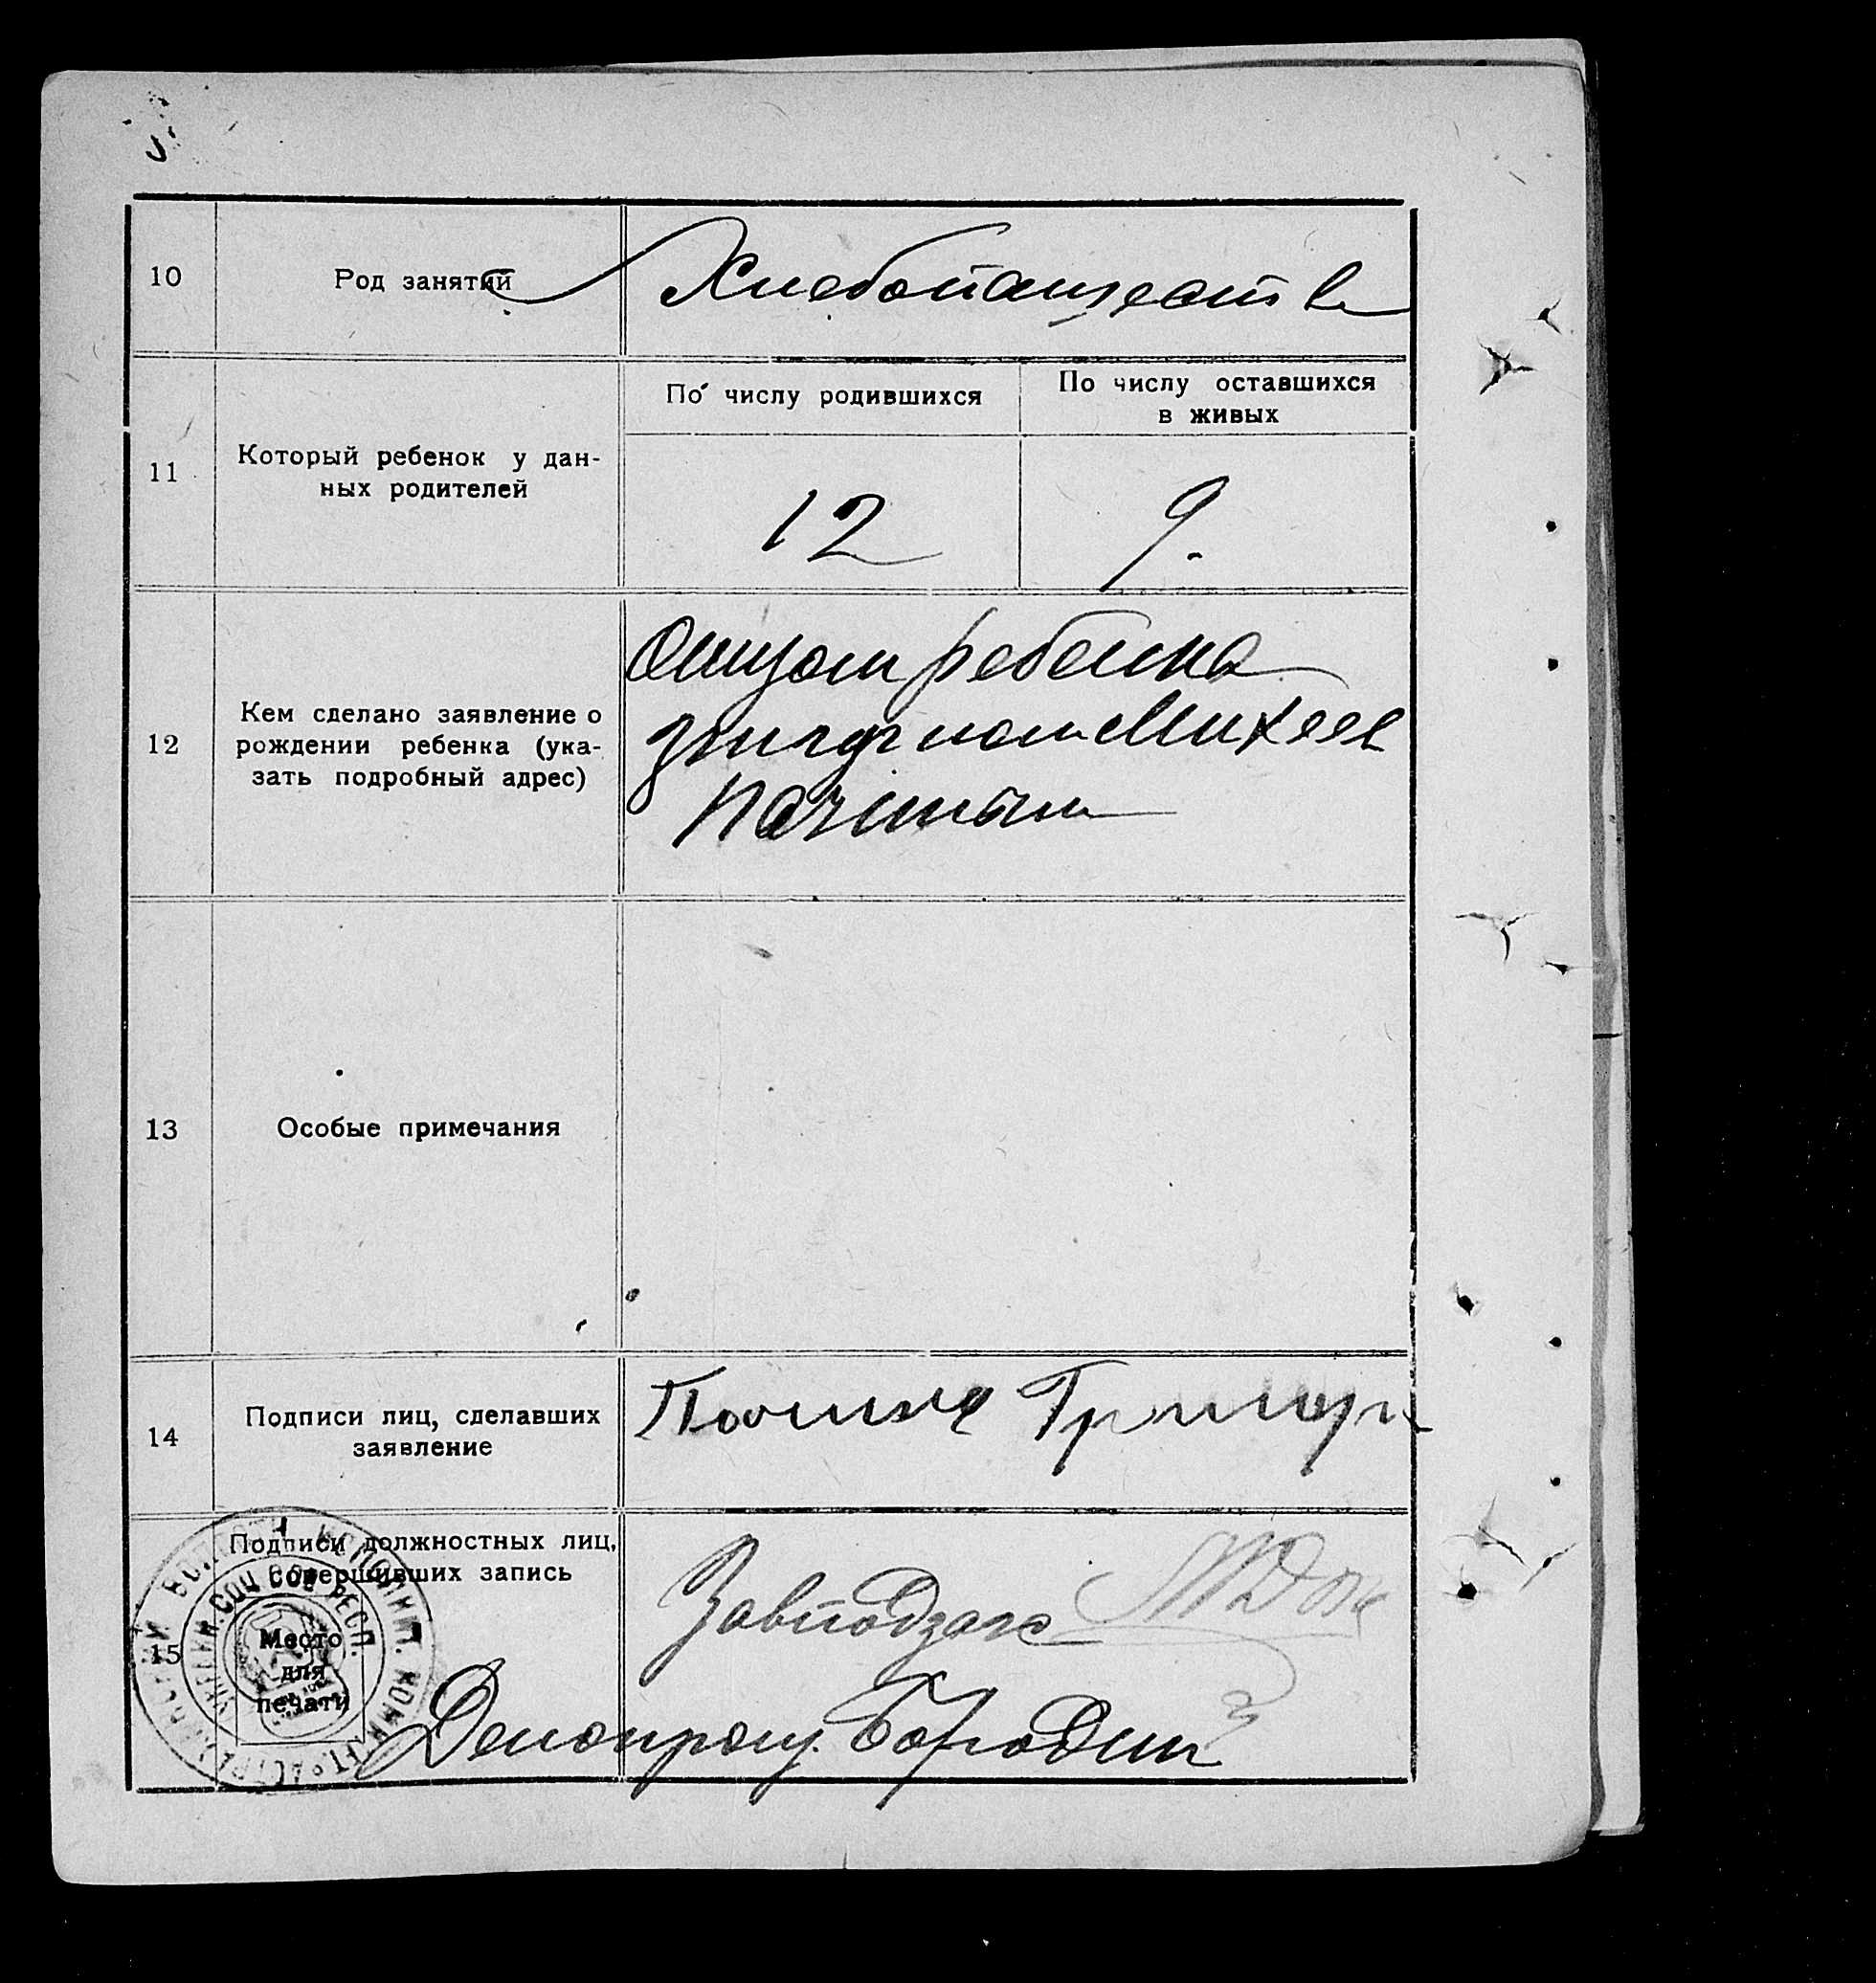 10
Род занятий
Хлебопашеств
11
Который ребенок у дан-
ных родителей
По числу родившихся
По числу оставшихся
в живых
12
9.
12
Кем сделано заявление о
рождении ребенка (ука-
зать подробный адрес)
Отцом ребенка
Михеев
13
Особые примечания
14
Подписи лиц, сделавших
заявление
15
Подписи должностных лиц,
совершивших запись
Место
для
печати
Завподзагс
Делопроиз. Бородин